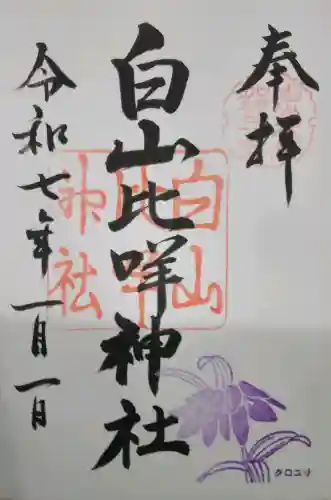 奉拝
白山比咩神社
令和七年一月一日
クロユリ